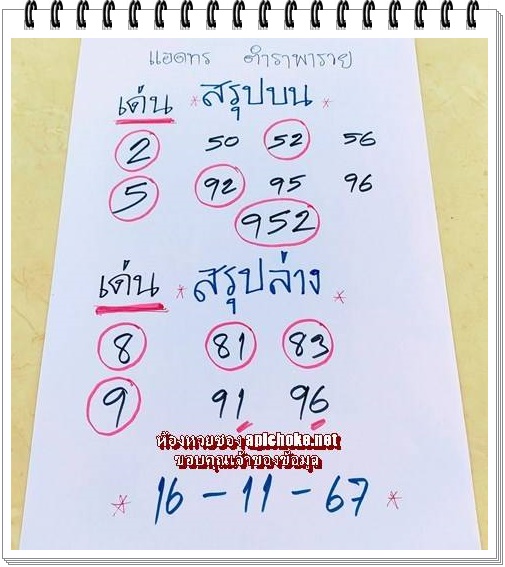 แอดทร ตำราพารวย
เด่น * สรุปบน *
2 50 52 56
5 92 95 96
952
เด่น * สรุปล่าง *
8 81 83
9 91 96
ห้องหวยซอง aplchoke.net
ขอบคุณเจ้าของข้อมูล
* 16 - 11 - 67 *